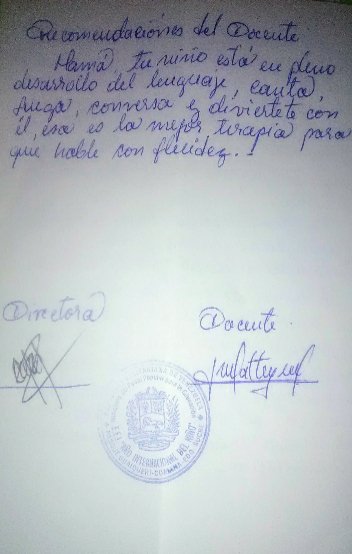 Recomendaciones del Docente
Mamá, tu niño está en pleno
desarrollo del lenguaje, canta
juega, conversa y diviertete con
él, esa es la mejor terapia para
que hable con fluidez...
Directora
Docente
AÑO INTERNACIONAL DEL NIÑO